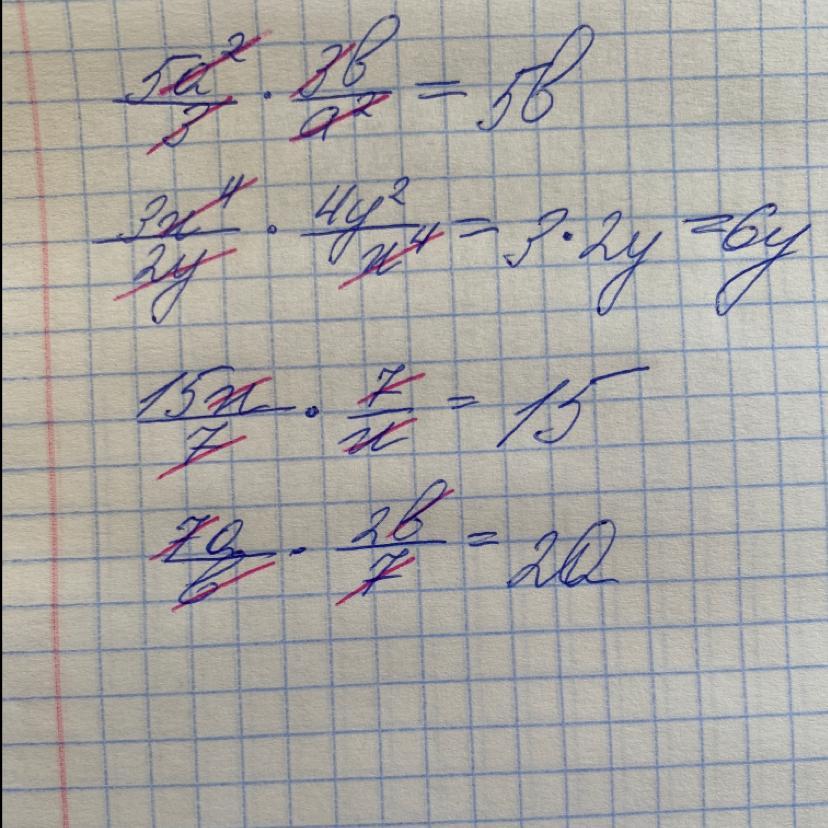 5a²/3 · 3b/a² = 5b
3x⁴/2y · 4y²/x⁴ = 3 · 2y = 6y
15x/7 · 7/x = 15
7a/b · 2b/7 = 2a